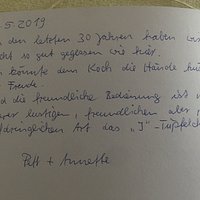 .5.2019
den letzten 30 Jahren haben wir
cht so gut gegessen wie hier.
könnte dem Koch die Hände kü
Freude.
d die freundliche Bedienung ist
er lustigen, freundlichen aber
dringlichen Art das "I"-Tüpfelch
+ Annette